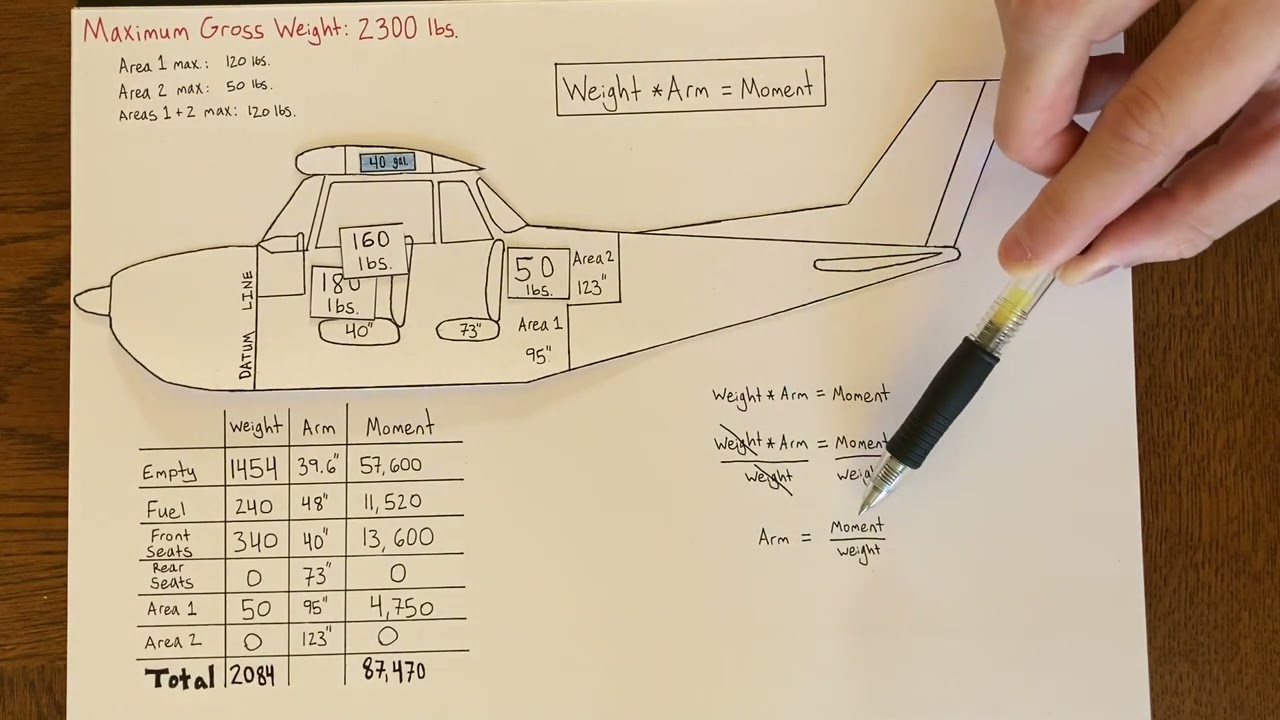 Maximum Gross Weight: 2300 lbs.
Area 1 max.: 120 lbs.
Area 2 max: 50 lbs.
Areas 1+2 max: 120 lbs.
Weight * Arm = Moment
40 gal.
160
lbs.
180
lbs.
40"
73"
50
lbs.
Area 2
123"
Area 1
95"
DATUM LINE
Weight * Arm = Moment
Weight * Arm = Moment
Weight
Arm = Moment
Weight
Weight Arm Moment
Empty 1454 39.6" 57,600
Fuel 240 48" 11,520
Front
Seats 340 40" 13,600
Rear
Seats 0 73" 0
Area 1 50 95" 4,750
Area 2 0 123" 0
Total 2084 87,470